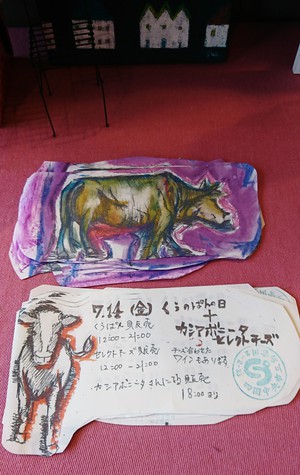 7.14 (金) くらのぱんの日
+
カシアボニータ
セレクトチーズ
くらぱん 販売
12:00-21:00
セレクトチーズ 販売
12:00-21:00
チーズに合わせた
ワインもあります
カシアボニータさんに巧 販売
18:00より